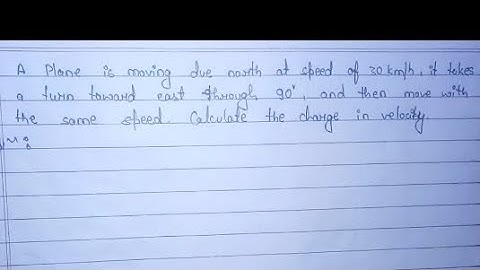 A Plane is moving due north at speed of 30 km/h, it takes
a turn toward east through 90°, and then move with
the same speed. Calculate the change in velocity.